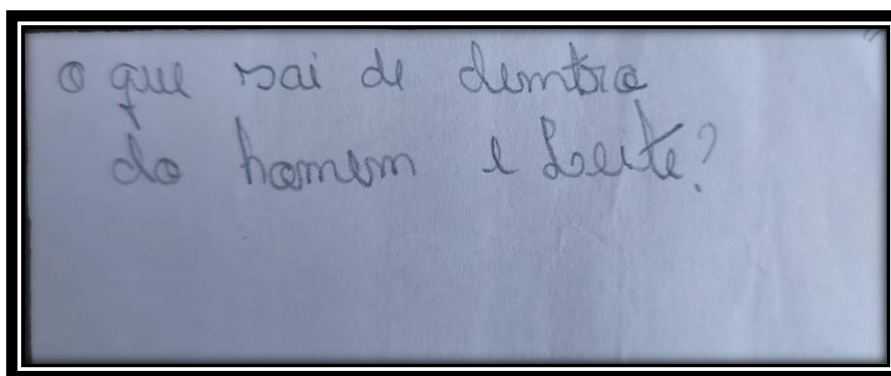 o que sai de demtro
do homem e Leite?